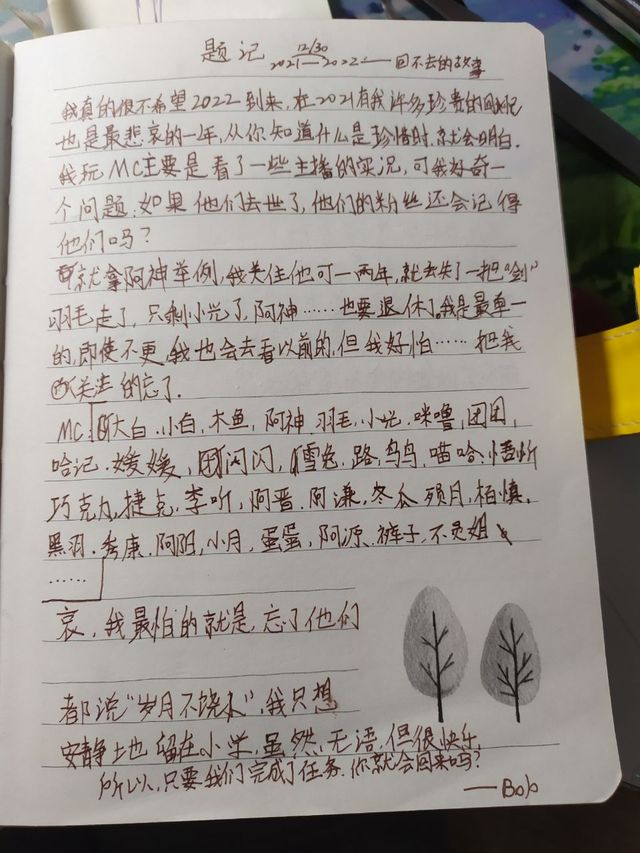 题记 12/30
2021—2022——回不去的故事
我真的很不希望2022到来，在2021有我许多珍贵的回忆
也是最悲哀的一年，从你知道什么是珍惜时，就会明白．
我玩MC主要是看了一些主播的实况，可我好奇一
个问题，如果他们去世了，他们的粉丝还会记得
他们吗？
就拿阿神举例，我关住他可一两年，就丢失了一把“剑”
羽毛走了，只剩小光了，阿神……也要退休了。我是最单一
的，即使不更，我也会去看以前的，但我好怕……把我
关注的忘了．
MC:大白．小白，木鱼，阿神，羽毛，小光．咪噜，团团，
哈记．媛媛，闪闪，雪兔，路，鸟鸟，喵哈，悟忻
巧克力，捷克，李听，阿晋．阿谦，冬瓜，殒月，柏慎．
黑羽．秀康．阿阴，小月，蛋蛋，阿源．裤子，不灵姐
……
哀，我最怕的就是，忘了他们
都说“岁月不饶人”，我只想
安静土地留在小学，虽然，无语，但很快乐，
所以，只要我们完成了任务．你就会回来吗？
——Bob